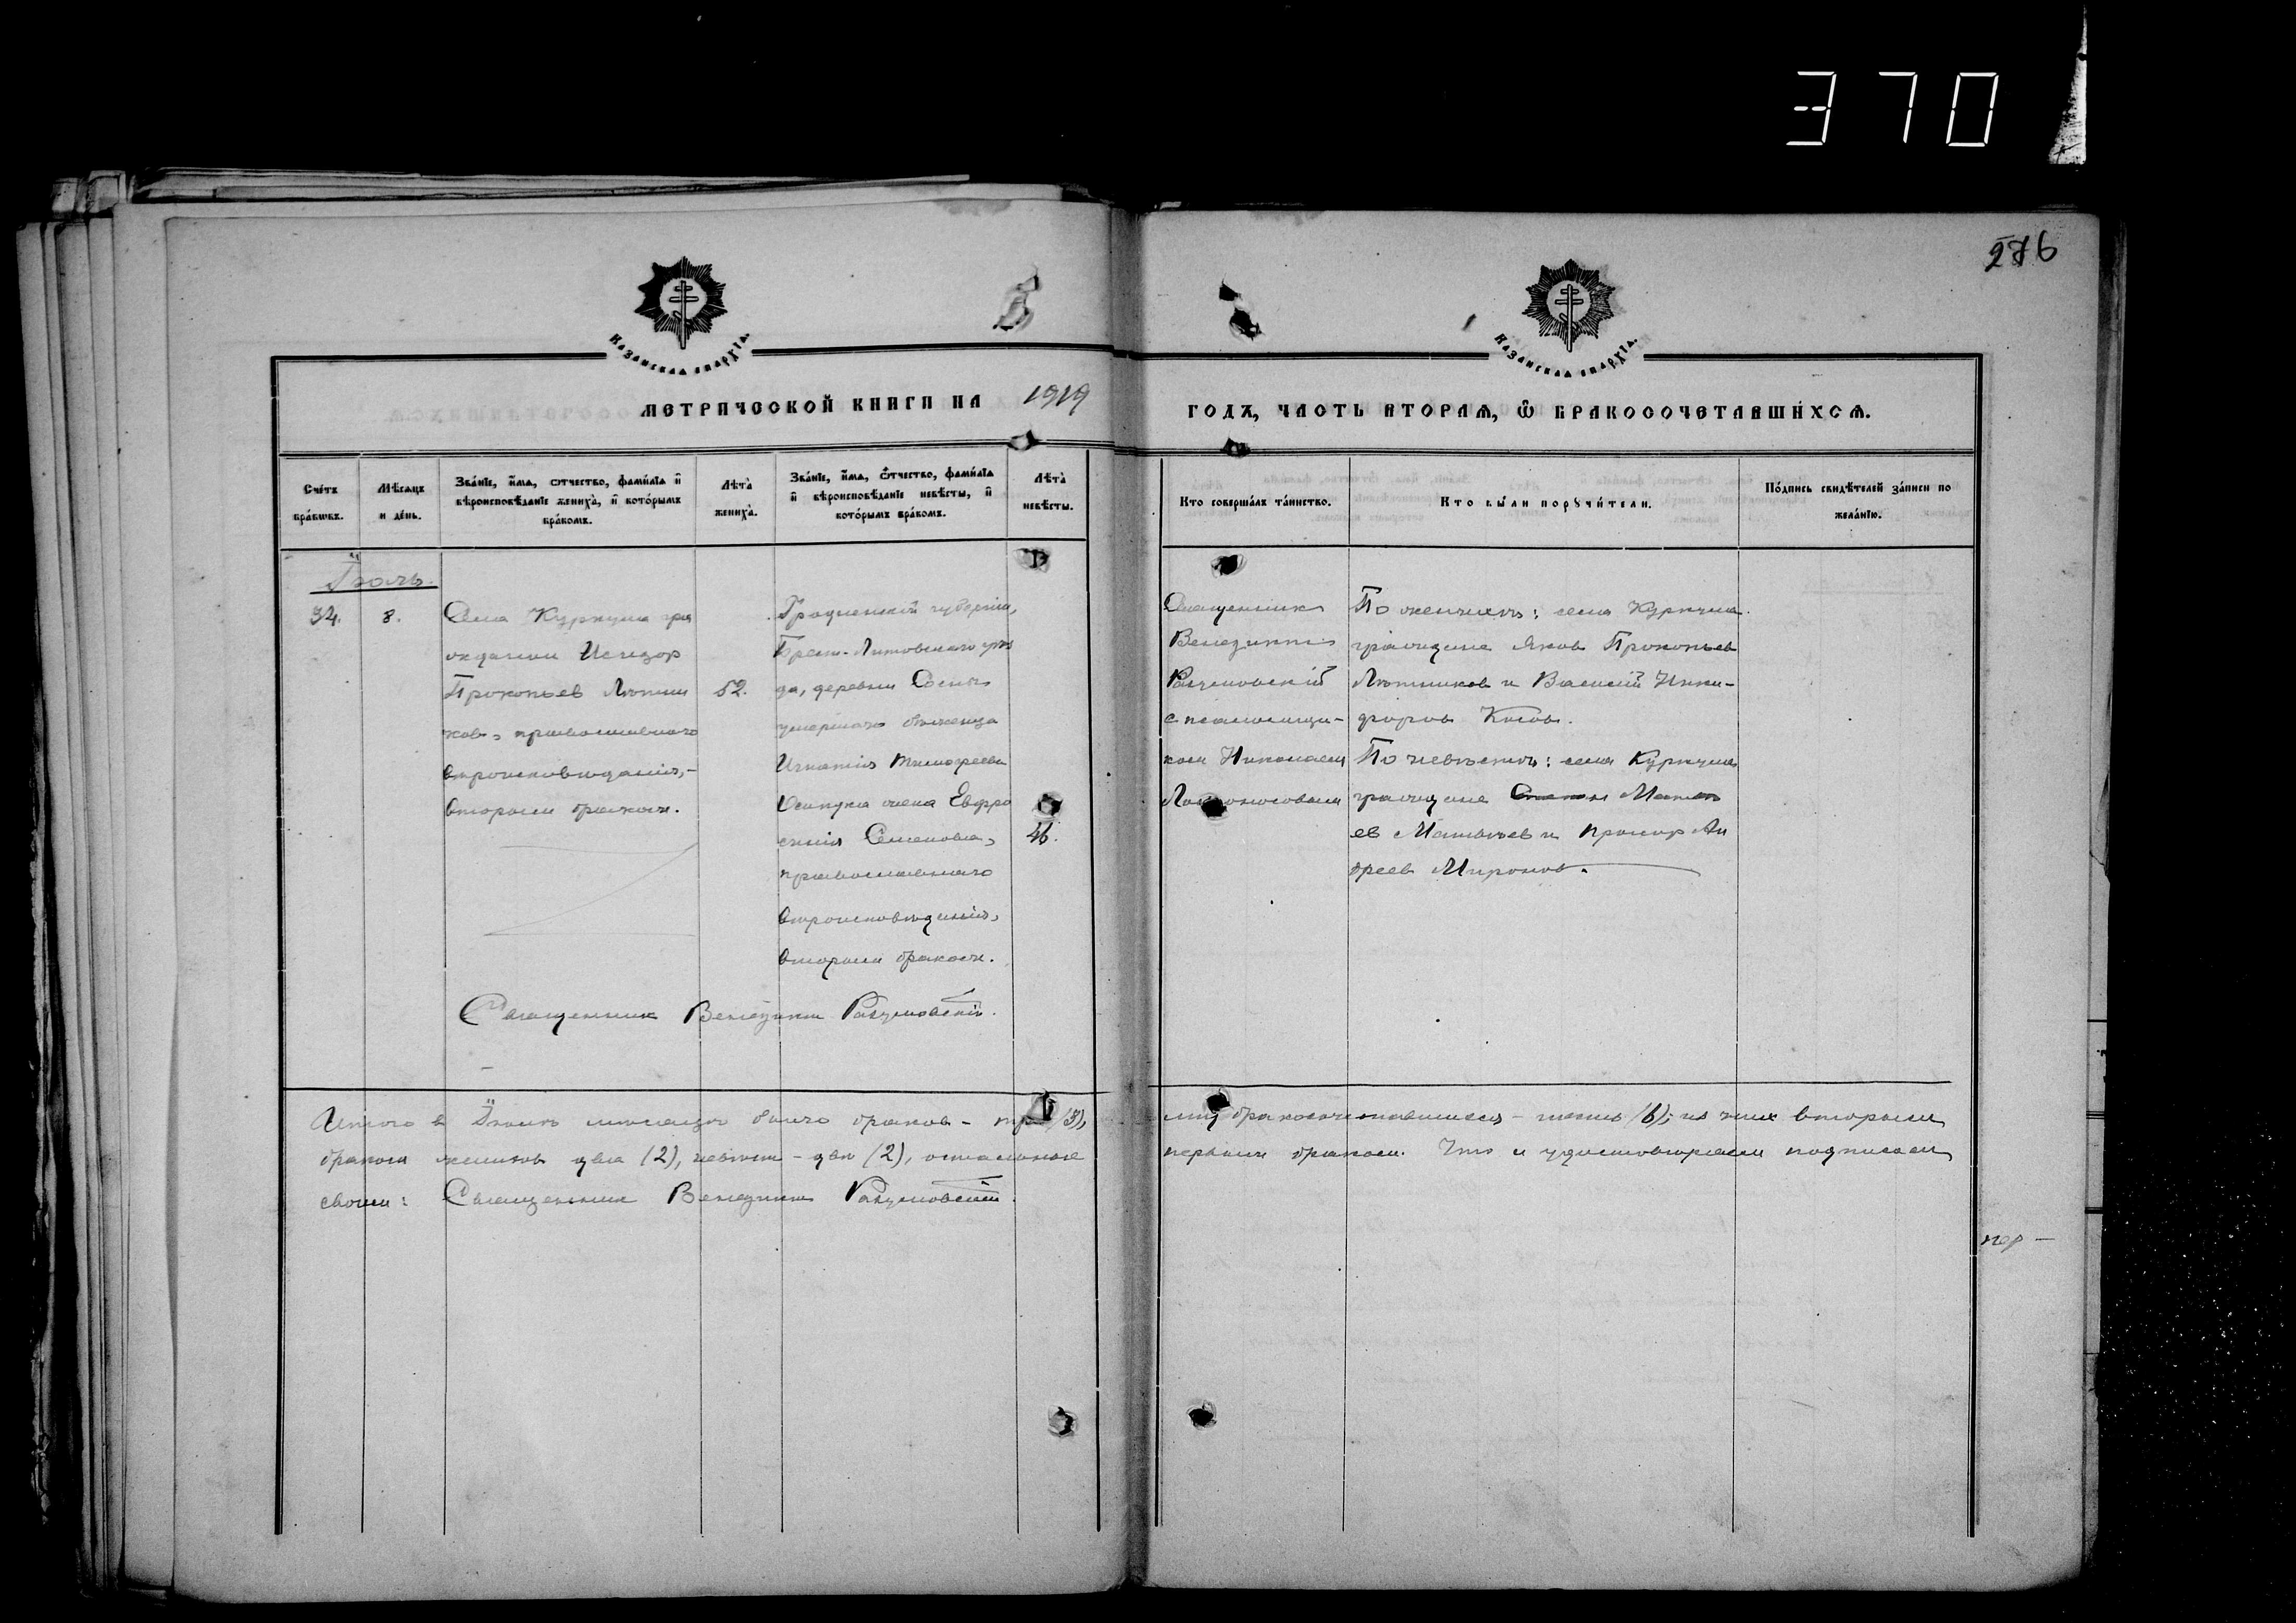 370
276
КАЗАНСКАЯ ЕПАРХІА.
КАЗАНСКАЯ ЕПАРХІА.
МЕТРИЧЕСКОЙ КНИГИ НА 1919
ГОДЪ, ЧАСТЬ ВТОРАЯ, Ѿ БРАКОСОЧЕТАВШИХСЯ.
Счетъ браковъ.
Мѣсяцъ и день.
Званіе, имя, отчество, фамилія и вѣроисповѣданіе жениха, и которымъ бракомъ.
Лѣта жениха.
Званіе, имя, отчество, фамилія и вѣроисповѣданіе невѣсты, и которымъ бракомъ.
Лѣта невѣсты.
Кто совершалъ таинство.
Кто были поручители.
Подпись свидѣтелей записи по желанію.
Іюль.
34.
8.
Села Куркуля гра
жданин Исидор
Прокопьев Лютни
ков, православнаго
вѣроисповѣданія,-
вторым браком.
52.
Гродненской губерніи,
Брест-Литовскаго уѣз
да, деревни
умершаго бѣженца
Игнатія Тимофеева
жена Евфро
синія Семенова,
православнаго
вѣроисповѣданія,
вторым браком.
46.
Священник
Венедикт
Разумовскій
с псаломщи-
ком Николаем
По женихѣ: села Куркуля
граждане Яков Прокопьев
Лютников и Василій Ники-
форов
По невѣстѣ: села Куркуля
граждане
ев Матвѣев и Прохор Ан
дреев Миронов.
Священник Венедикт Разумовскій.
Итого в Іюлѣ мѣсяцѣ было браков - три (3),
лиц бракосочетавшихся - шесть (6); из них вторым
браком женихов два (2), невѣст - двѣ (2), остальные
первым браком. Что и удостовѣряем подписом
своим: Священник Венедикт Разумовскій.
пер -